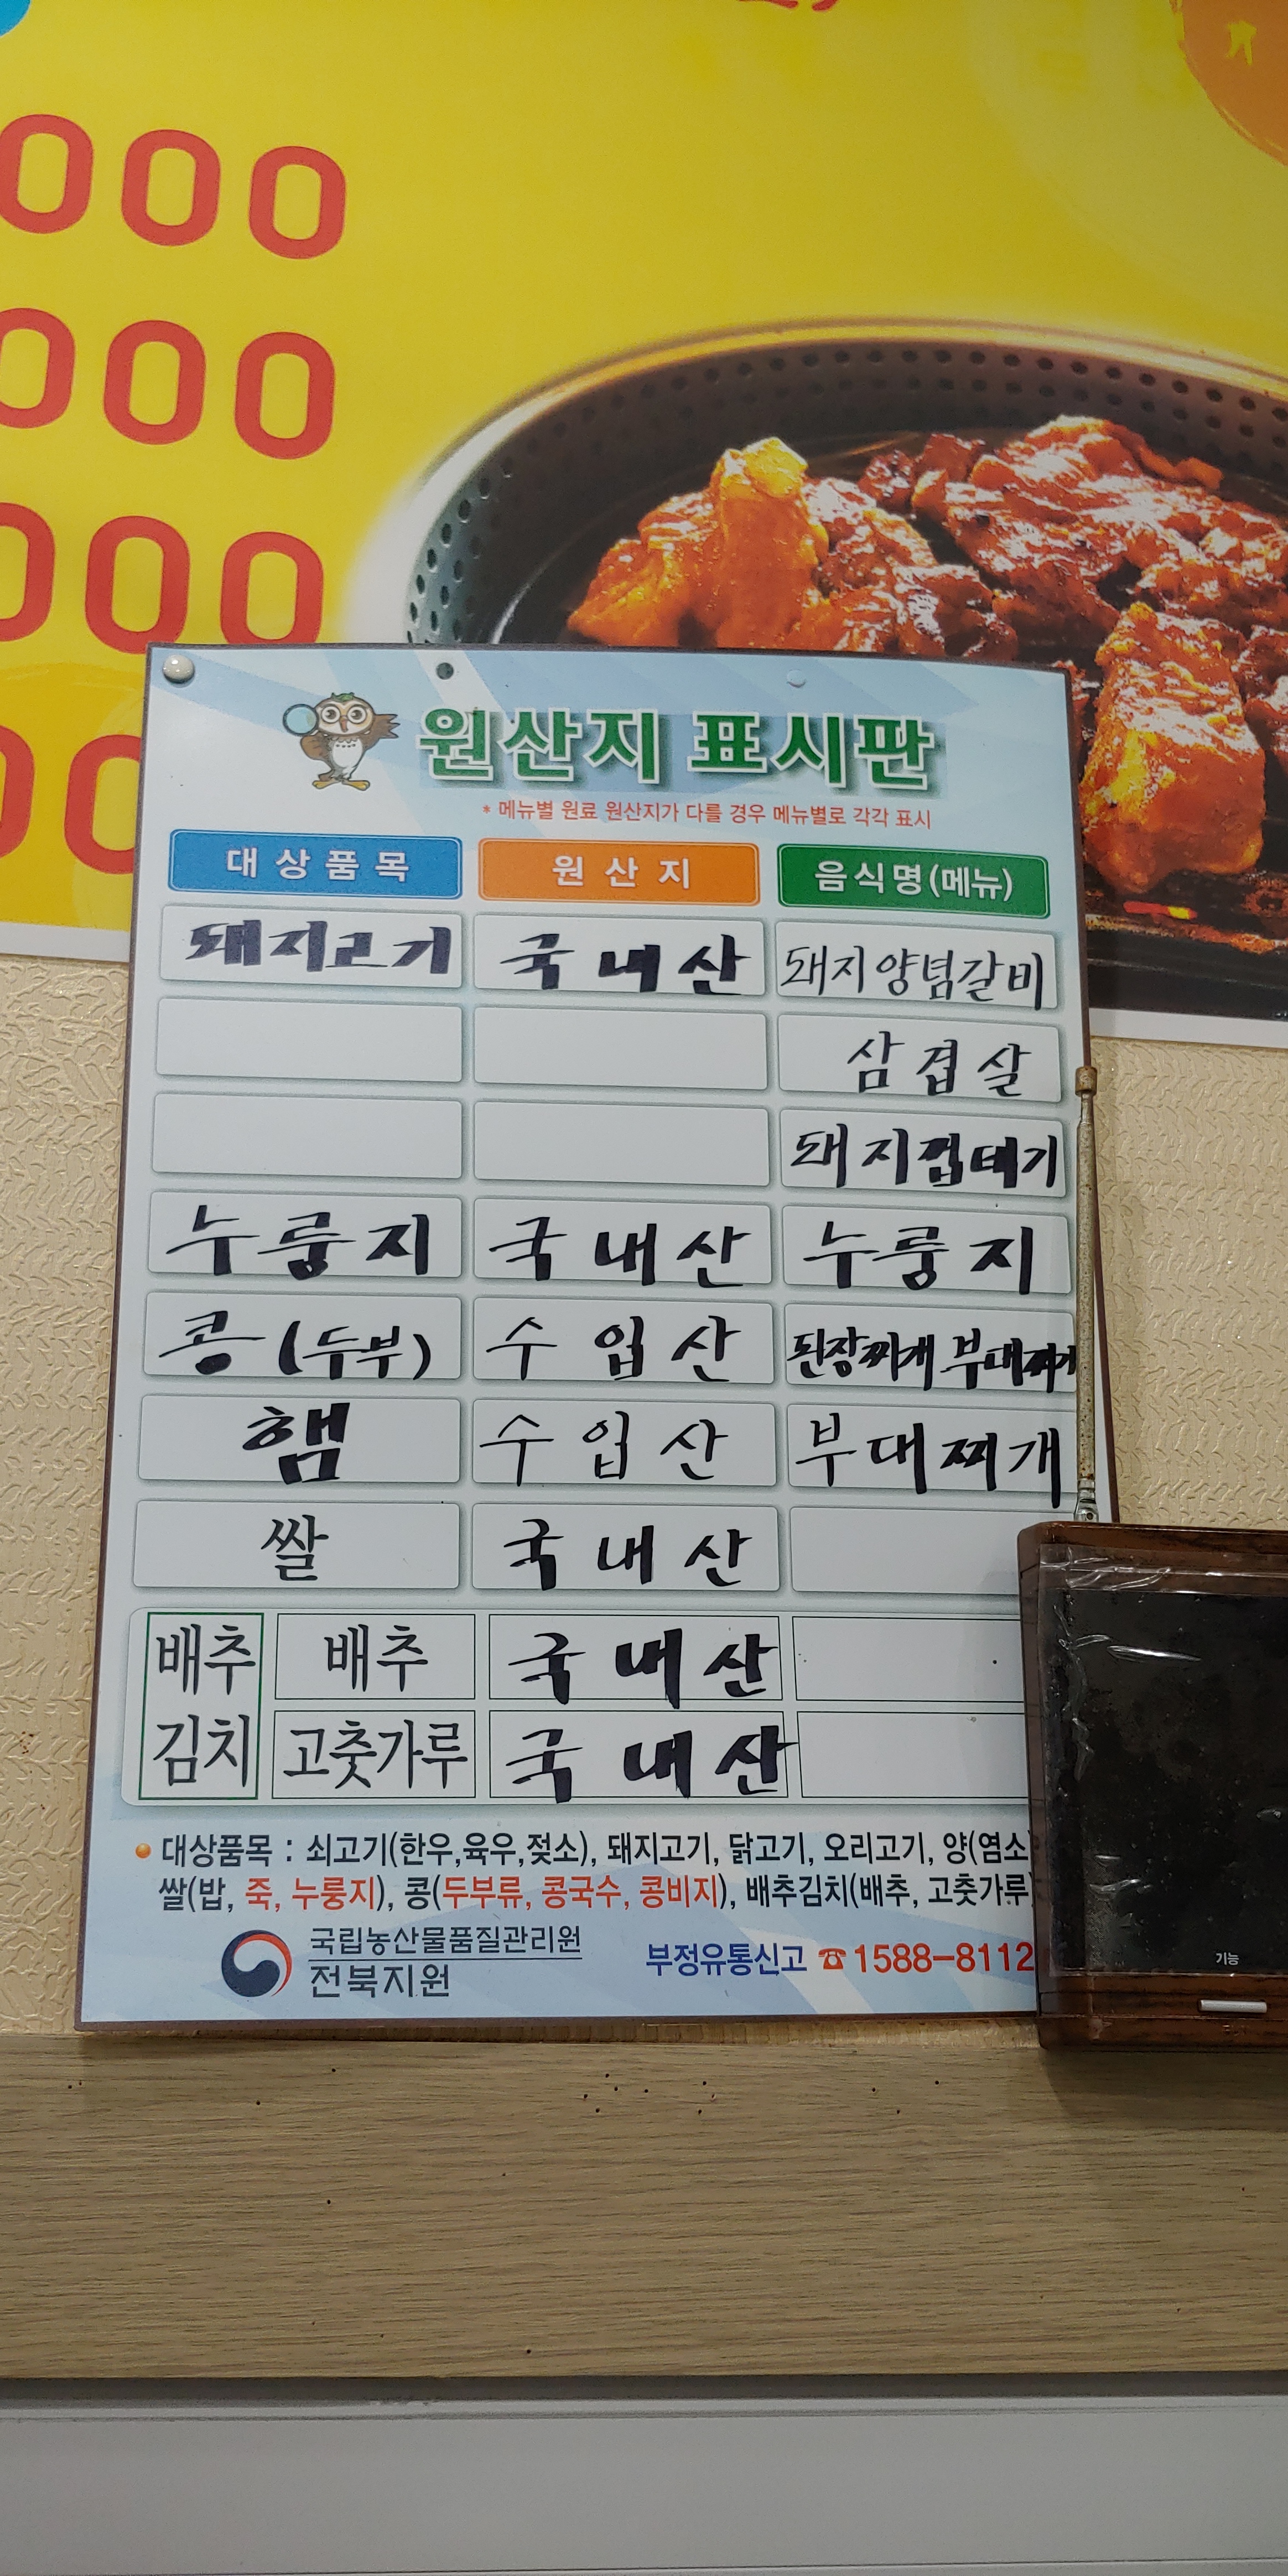 000
000
000
00
원산지 표시판
* 메뉴별 원료 원산지가 다를 경우 메뉴별로 각각 표시
대상품목 원산지 음식명(메뉴)
돼지고기 국내산 돼지양념갈비
삼겹살
돼지껍테기
누룽지 국내산 누룽지
콩(두부) 수입산 된장찌개 부대찌개
햄 수입산 부대찌개
쌀 국내산
배추김치 배추 국내산
고춧가루 국내산
대상품목 : 쇠고기(한우,육우,젖소), 돼지고기, 닭고기, 오리고기, 양(염소)
쌀(밥, 죽, 누룽지), 콩(두부류, 콩국수, 콩비지), 배추김치(배추, 고춧가루)
국립농산물품질관리원
전북지원
부정유통신고 ☎1588-8112
기능